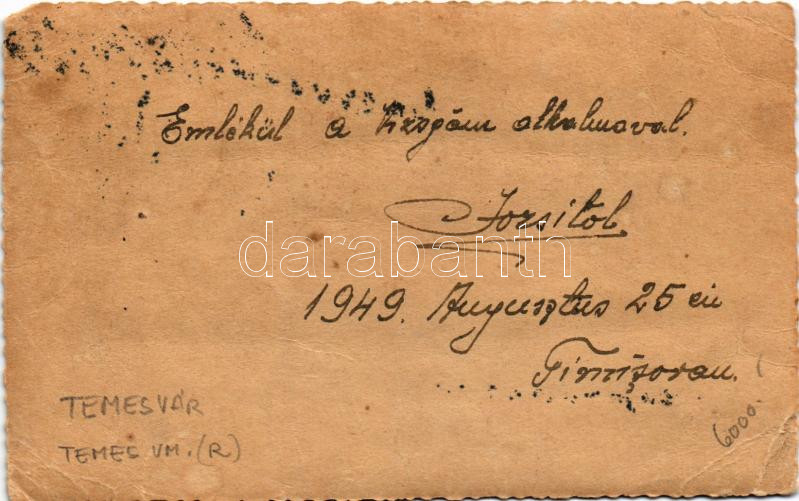 Emlékül a vizsgám alkalmaval.
Jozsitol.
darabanth
1949. Augusztus 25 én
Timișorau.
TEMESVÁR
TEMES VM. (R)
6000.